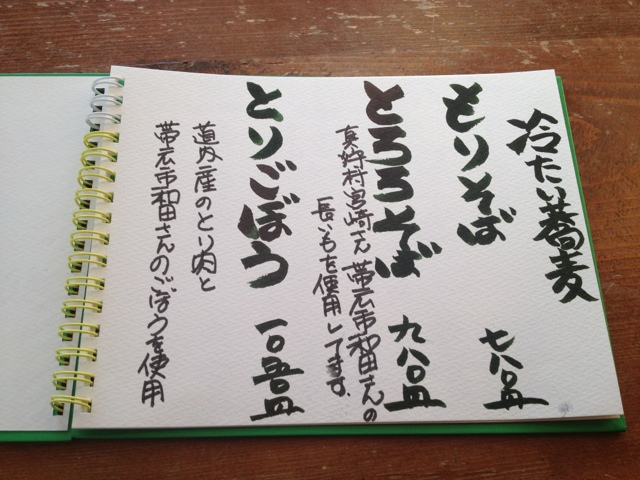 冷たい蕎麦
もりそば 七八〇円
とろろそば 九八〇円
真狩村宮崎さん 帯広市和田さんの
長いもを使用してます。
とりごぼう 一〇五〇円
道内産のとり肉と
帯広市和田さんのごぼうを使用